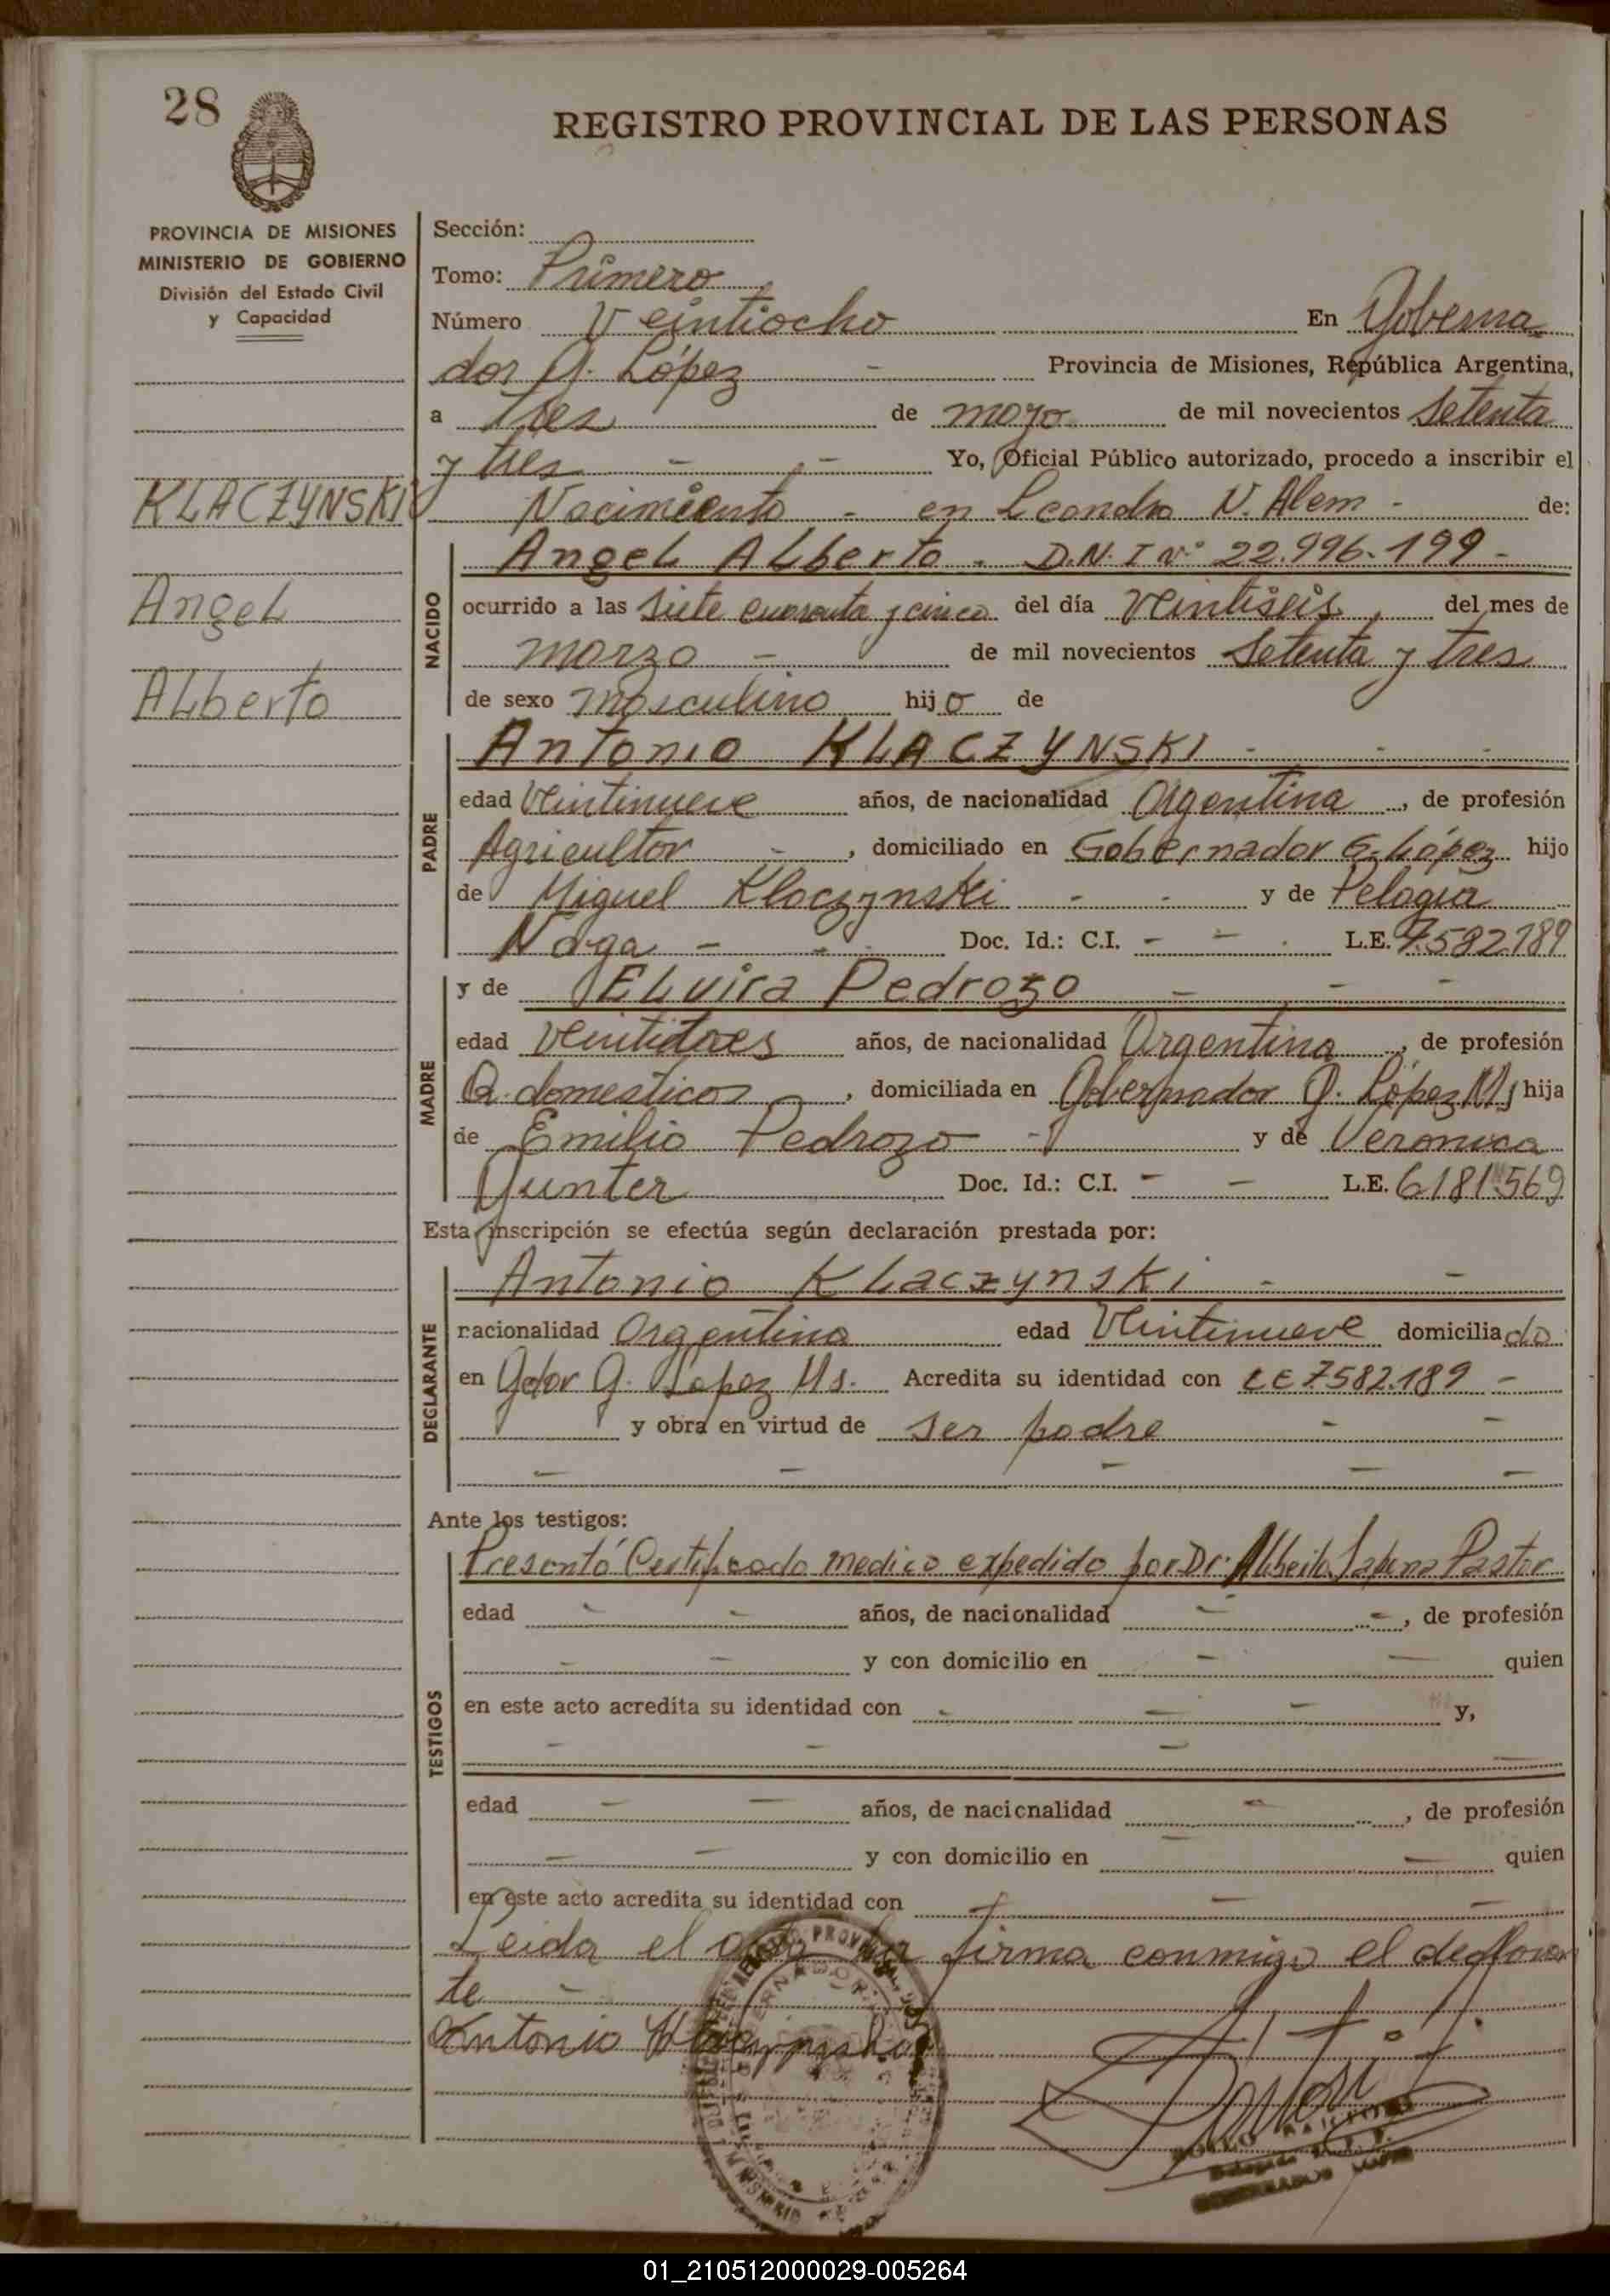 28
REGISTRO PROVINCIAL DE LAS PERSONAS
PROVINCIA DE MISIONES
MINISTERIO DE GOBIERNO
División del Estado Civil
y Capacidad
KLACZYNSKI
Angel
ALberto
Sección:
Tomo: Primero
Número Veintiocho En Goberna
dor G. López - Provincia de Misiones, República Argentina,
a tres de mayo de mil novecientos Setenta
y tres - - Yo, Oficial Público autorizado, procedo a inscribir el
Nacimiento - en Leandro N. Alem - de:
NACIDO
AngeL ALberto - D.N.I Nº 22.996.199 -
ocurrido a las siete cuarenta y cinco del día Veintiseis del mes de
marzo - de mil novecientos Setenta y tres
de sexo masculino hijo de
PADRE
Antonio KLACZYNSKI - - -
edad Veintinueve años, de nacionalidad Argentina, de profesión
Agricultor -, domiciliado en Gobernador G. López hijo
de Miguel Klaczynski - - y de Pelagia
Naga - - Doc. Id.: C.I. - - L.E. 7.582.189
MADRE
y de ELvira Pedrozo - - -
edad Veintidoes años, de nacionalidad Argentina, de profesión
Q. domesticos, domiciliada en Gobernador G. López Ms hija
de Emilio Pedrozo - y de Veronica
Gunter Doc. Id.: C.I. - - L.E. 6181569
Esta inscripción se efectúa según declaración prestada por:
DECLARANTE
Antonio KLaczynski - -
nacionalidad Argentina edad Veintinueve domiciliado
en Gdor G. López Ms. Acredita su identidad con LE 7.582.189 -
y obra en virtud de ser padre - -
Ante los testigos:
TESTIGOS
Presentó Certificado medico expedido por Dr. Alberto Pastor
edad - - años, de nacionalidad - -, de profesión
- - y con domicilio en - - quien
en este acto acredita su identidad con - - - y,
- - - -
edad - - años, de nacionalidad -, de profesión
- - y con domicilio en - - quien
en este acto acredita su identidad con - - -
Leida el acta firma conmigo el declaran
te -
Antonio Klaczynski
01_210512000029-005264